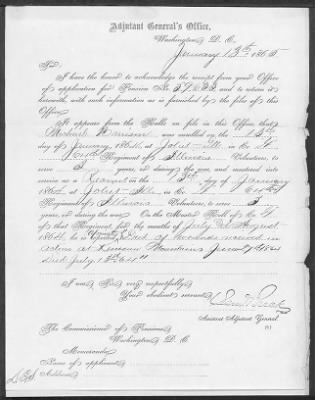 Adjutant General's Office,
Washington D. C.
January 13th 1865
Sir:
I have the honor to acknowledge the receipt from your Office
of application for Pension No. and to return it
herewith, with such information as is furnished by the files of this
Office.
It appears from the Rolls on file in this Office, that
Michael was enrolled on the 13th
day of January 1864, at Joliet Ills. in Co. G
64th Regiment of Illinois Volunteers, to
serve 3 years, or during the war, and mustered into
service as a Recruit on the day of January
1864, at Joliet Ills. in Co. G 64th
Regiment of Illinois Volunteers, to serve 3
years, or during the war. On the Muster Roll of Co. G
of that Regiment, for the months of July & August
1864, he is reported Died of wounds received in
action at Kenesaw Mountain June 1864
Died July 1864"
I am Sir, very respectfully,
Your obedient servant,
Assistant Adjutant General.
The Commissioner of Pensions
Washington D. C.
Memoranda
Name of applicant
Address